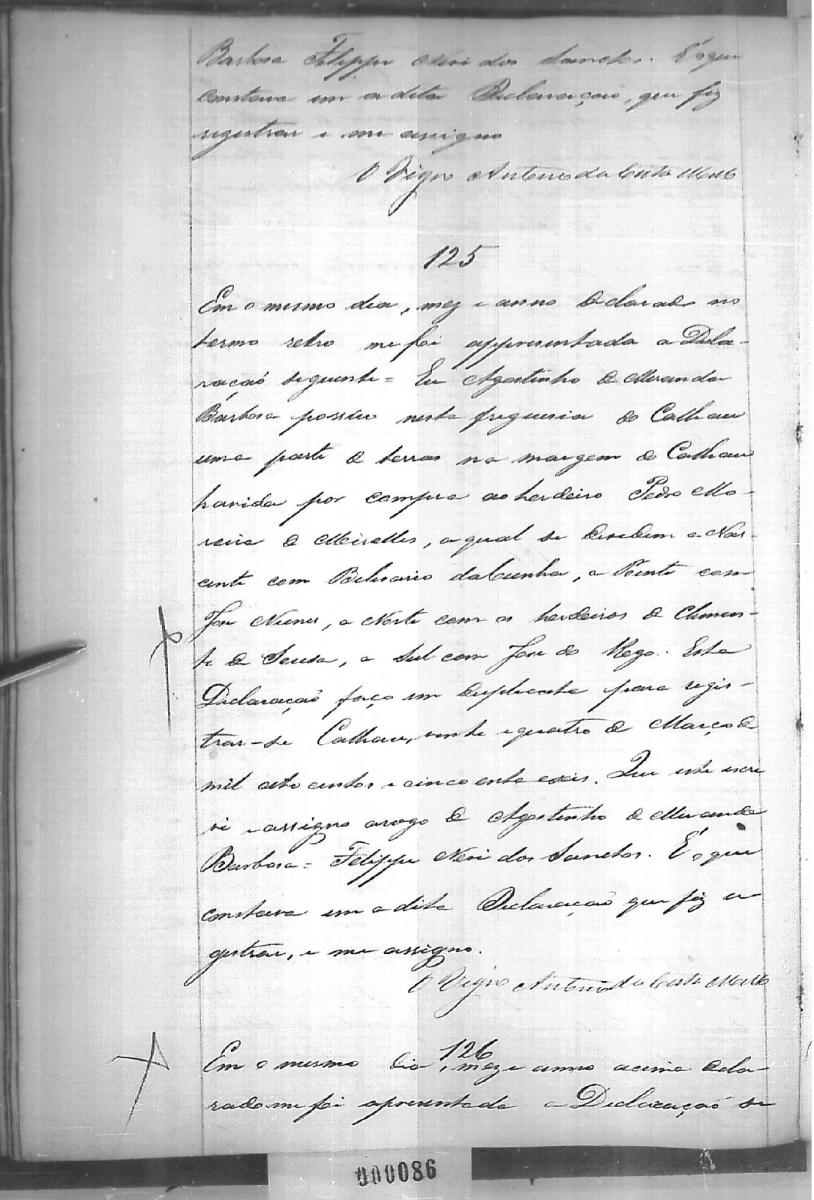 Barbosa Filippe Neri dos Sanctos. É o que
constava em a dita Declaração, que fiz
registrar e me assigno
O Vigrº Antonio da Costa
125
Em o mesmo dia, mez e anno declarado no
termo retro me foi appresentada a Decla-
ração seguinte = Eu Agostinho de Miranda
Barbosa possuo nesta freguesia do Calhau
uma parte de terras na margem do Calhau
havida por compra ao herdeiro Pedro Mo-
reira de Meirelles, a qual se devidem a Nas-
cente com Belisario da Cunha, a Poente com
José Nunes, a Norte com os herdeiros de Clemen-
te de Sousa, a Sul com José do Rego. Esta
Declaração faço em duplicata para regis-
trar-se Calhau, vinte e quatro de Março de
mil oito centos e cincoenta e seis. Que este escre
vi e assigno arogo de Agostinho de Miranda
Barbosa = Filippe Neri dos Sanctos. É o que
constava em a dita Declaração que fiz re
gistrar, e me assigno.
O Vigrº Antonio da Costa
126
Em o mesmo dia, mez e anno acima decla-
rado me foi apresentada a Declaração se
000086